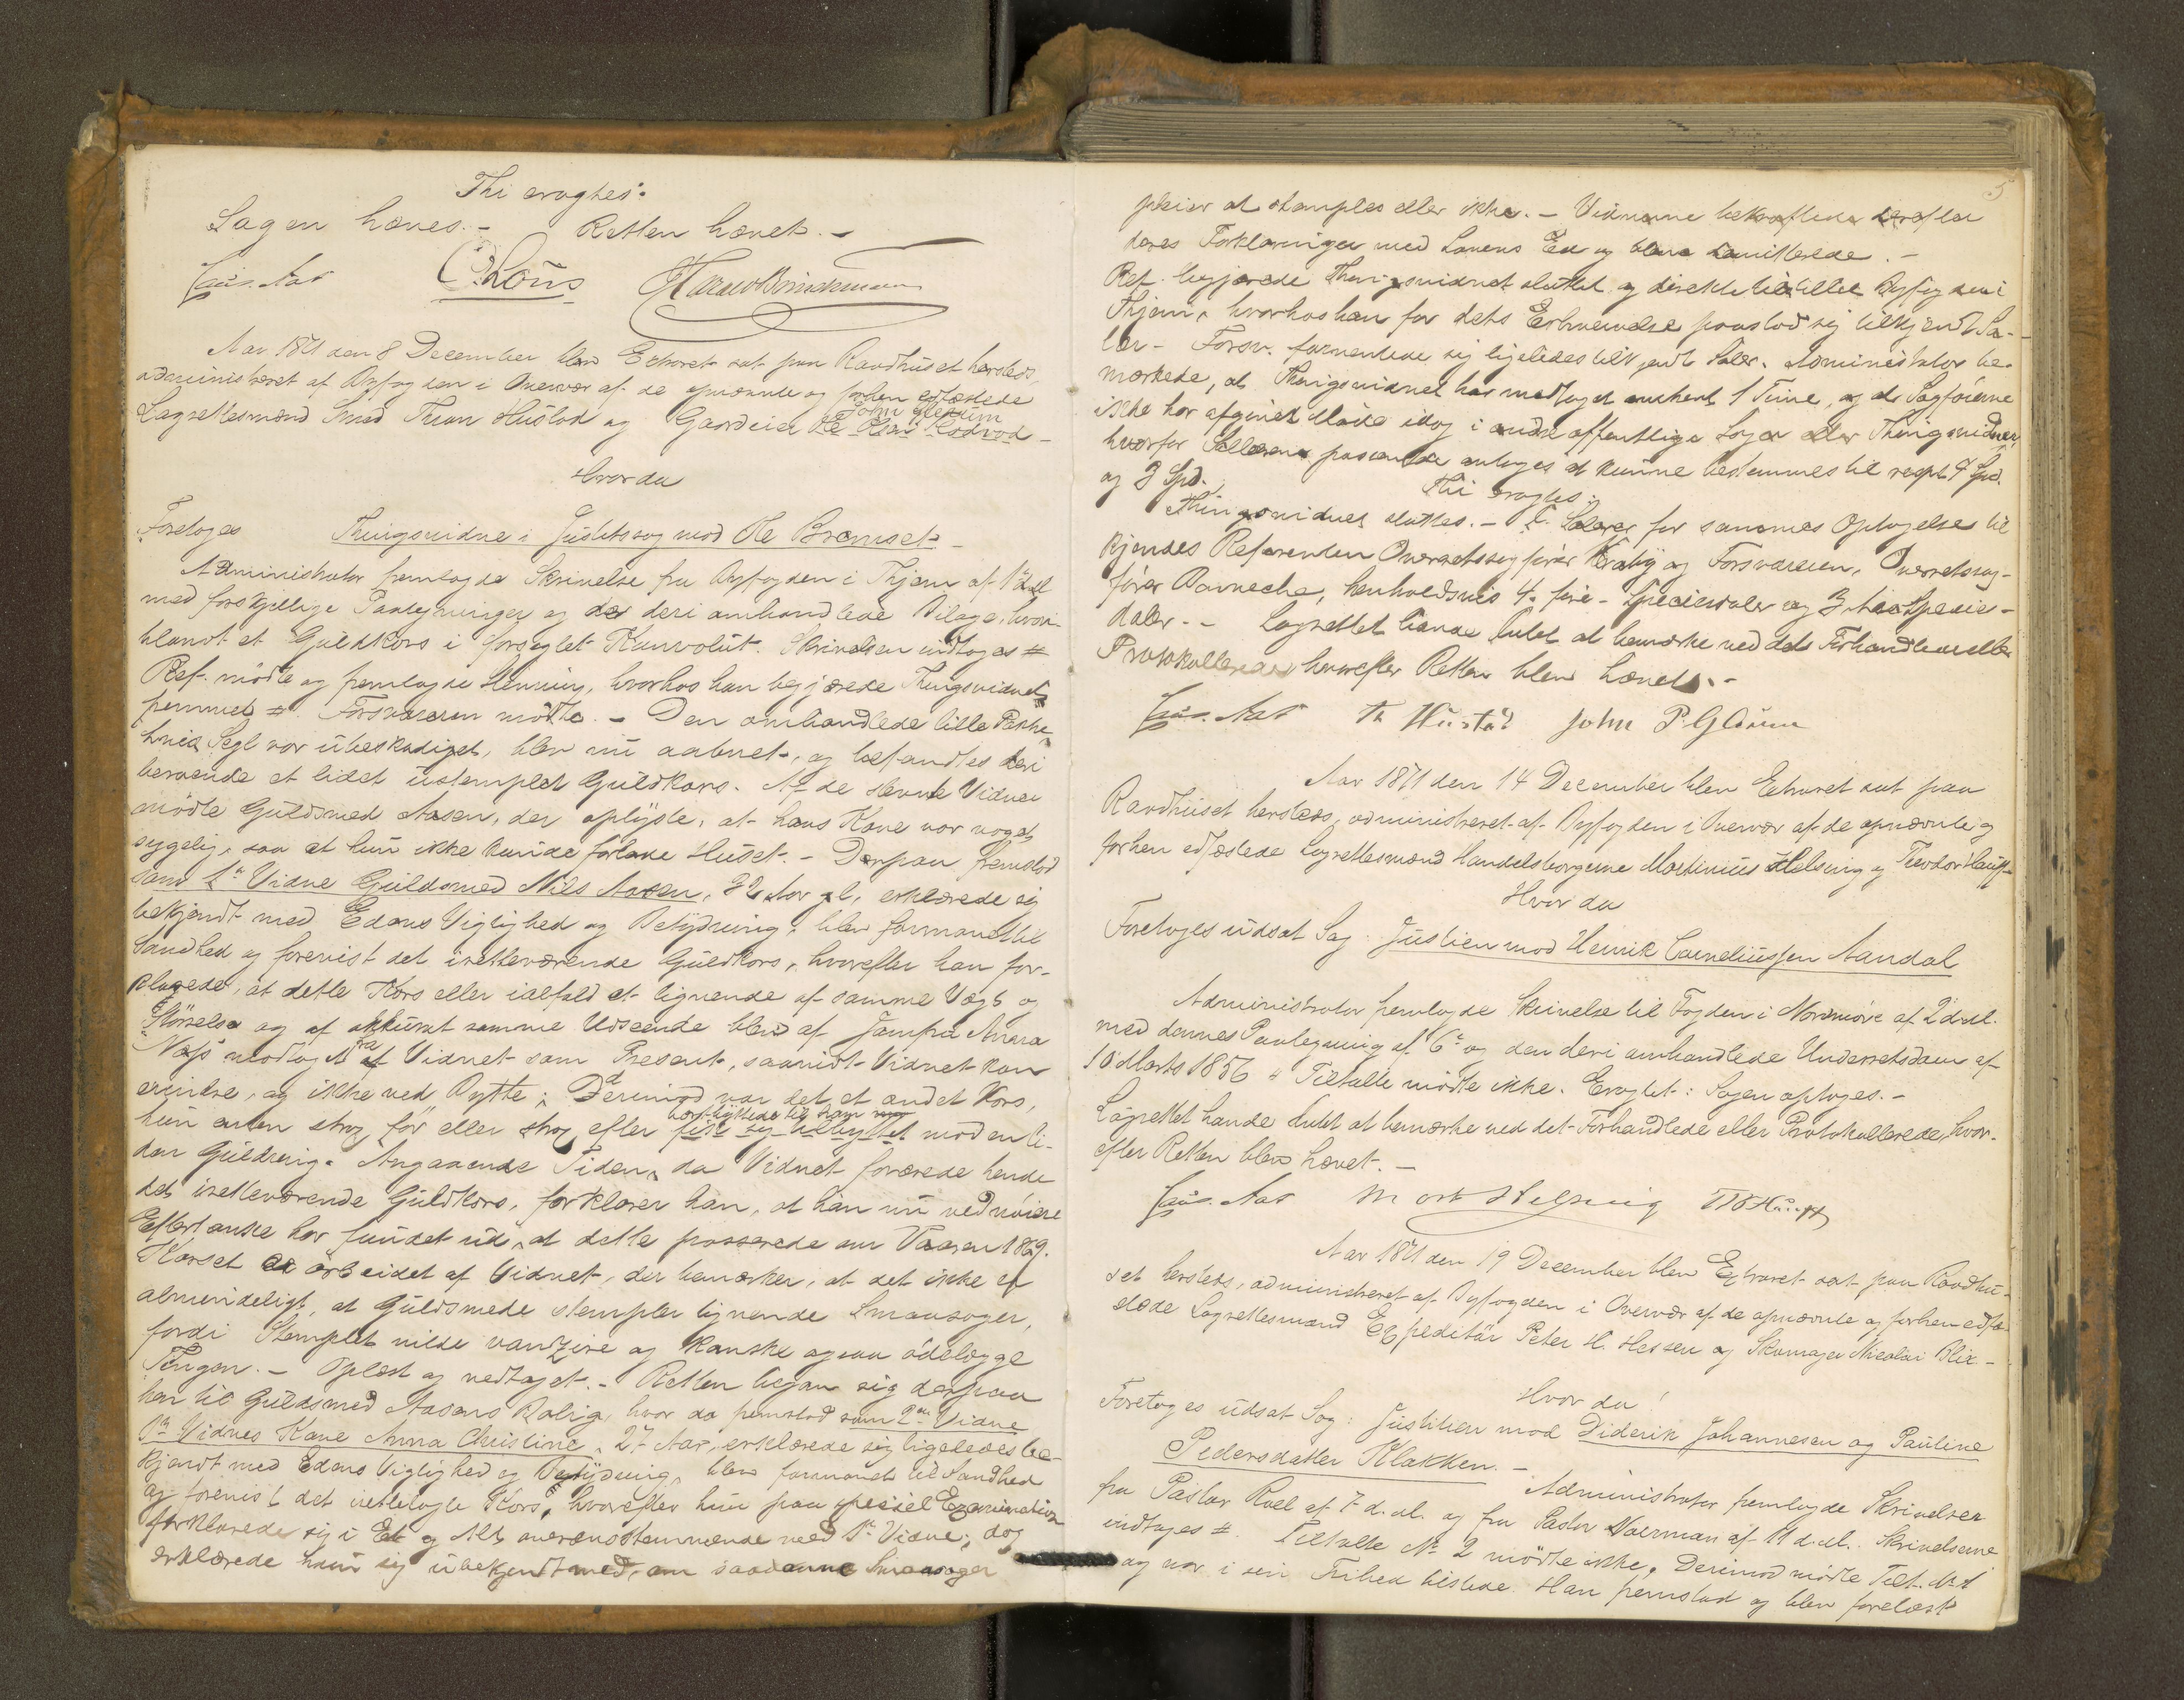 Thi eragtes:
Sagen hæves. - Retten hævet. -
Chr. Aas C. Lous
Aar 1871 den 8 December blev Extraret sat paa Raadhuset hersteds,
administreret af Byfogden i Overvær af de opnævnte og forhen edfæstede
Lagrettesmænd Smed Thron Hustad og Gaardeier Ole Olsen Rødvod - John Glærum
Hvorda
Foretoges Thingsvidne i Justitssag mod Ole Bremset -
Administrator fremlagde Skrivelse fra Byfogden i Thjem af 1 d.M.
med forskjellige Paategninger og de deri omhandlede Bilage, hvori-
blandt et Guldkors i forseglet Kunvolut. Skrivelsen indtages #
Ref. mödte og fremlagde Stevning, hvorhos han begjærede Thingsvidnet
fremmet #. Forsvareren mödte. - Den omhandlede lille Pakke,
hvis Segl var ubeskadiget, blev nu aabnet, og befandtes deri
beroende et lidet ustemplet Guldkors. Af de stevnte Vidner
mödte Guldsmed Aasen, der oplyste, at hans Kone var noget
sygelig, saa at hun ikke kunde forlade Huset. - Derpaa fremstod
som 1te Vidne Guldsmed Nils Aasen, 32 Aar gl., erklærede sig
bekjendt med Edens Vigtighed og Betydning, blev formanet til
Sandhed og forevist det iretteværende Guldkors, hvorefter han for-
klarede, at dette Kors eller ialfald et lignende af samme Vægt og
Störrelse og af akkurat samme Udseende blev af Jomfru Anna
Næss modtaget fra Vidnet som Present, saavidt Vidnet kan
erindre, og ikke ved Bytte; Derimod var det et andet Kors,
hun enten strax för eller strax efter fik sig tilbyttet bortbyttede til ham mod en li-
den Guldring. Angaaende Tiden, da Vidnet forærede hende
det iretteværende Guldkors, forklarer han, at han nu ved nöiere
Eftertanke har fundet ud, at dette passerede om Vaaren 1869.
Korset er arbeidet af Vidnet, der bemærker, at det ikke er
almindeligt, at Guldsmede stempler lignende Smaasager,
fordi Stemplet vilde vanzire og kanske ogsaa ödelægge
Tingen. - Oplæst og vedtaget. - Retten begav sig derpaa
hen til Guldsmed Aasens Bolig, hvor da fremstod som 2det Vidne
1te Vidnes Kone Anna Christine, 27 Aar, erklærede sig ligeledes be-
kjendt med Edens Vigtighed og Betydning, blev formanet til Sandhed
og forevist det irettelagte Kors, hvorefter hun paa speciel Examination
forklarede sig i Et og Alt overensstemmende med 1te Vidne; dog
erklærede hun sig ubekjendt med, om saadanne Smaasager
5
pleier at stemples eller ikke. - Vidnerne bekræftede derefter
deres Forklaringer med Lovens Ed og bleve demitterede. -
Ref. begjærede Thingsvidnet sluttet og direkte tilstillet Byfogden i
Thjem, hvorhos han for dets Erhvervelse paastod sig tilkjendt Sa-
lær - Forsv. formentede sig ligeledes tilkjendt Salær. Administrator be-
mærkede, at Thingsvidnet har medtaget omtrent 1 Time, og at Sagförerne
ikke har afgivet Möde idag i andre offentlige Sager eller Thingsvidner,
hvorfor Sallærerne passende antages at kunne bestemmes til respt. 4 Spd.
og 3 Spd.
Thi eragtes:
Thingsvidnet sluttes. - I Salærer for sammes Optagelse til
kjendes Referenten Overretssagförer Kraby og Forsvareren, Overretssag-
förer Barneche, henholdsvis 4 - fire - Speciedaler og 3 - tre Specie-
daler. - Lagrettet havde Intet at bemærke ved det Forhandlede eller
Protokollerede, hvorefter Retten blev hævet. -
Chr. Aas Th Hustad John P. Glærum
Aar 1871 den 14 December blev Extraret sat paa
Raadhuset hersteds, administreret af Byfogden i Overvær af de opnævnte og
forhen edfæstede Lagrettesmænd Handelsborgerne Martinius Helsing og Theodor Hauff
Hvorda
Foretoges udsat Sag: Justitien mod Henrik Corneliussen Aandal
Administrator fremlagde Skrivelse til Fogden i Nordmöre af 2 d.M.
med dennes Paategning af 6te og den deri omhandlede Underretsdom af
10 Marts 1856 # Tiltalte mödte ikke. Eragtet: Sagen optages. -
Lagrettet havde Intet at bemærke ved det Forhandlede eller Protokollerede, hvor-
efter Retten blev hævet. -
Chr. Aas Mart Helsing Th Hauff
Aar 1871 den 19 December blev Extraret sat paa Raadhu-
set hersteds, administreret af Byfogden i Overvær af de opnævnte og forhen edfæ-
stede Lagrettesmænd Expeditör Peter H. Hessen og Skomager Nicolai Blix -
Hvor da!
Foretoges udsat Sag: Justitien mod Diderik Johannesen og Pauline
Pedersdatter Klakken. - Administrator fremlagde Skrivelser
fra Pastor Roel af 7 d.M. og fra Pastor Voerman af 11 d.M. Skrivelserne
indtages #. Tiltalte No 2 mödte ikke, Derimod mödte Tilt. No 1
og var i sin Frihed tilstede. Han fremstod og blev forelæst